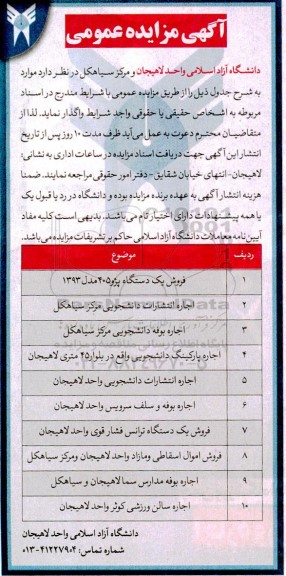 آگهی مزایده عمومی
دانشگاه آزاد اسلامی واحد لاهیجان و مرکز سیاهکل در نظر دارد موارد
به شرح جدول ذیل را از طریق مزایده عمومی با شرایط مندرج در اسناد
مربوطه به اشخاص حقیقی یا حقوقی واجد شرایط واگذار نماید. لذا از
متقاضیان محترم دعوت به عمل می‌آید ظرف مدت ۱۰ روز پس از تاریخ
انتشار این آگهی جهت دریافت اسناد مزایده در ساعات اداری به نشانی:
لاهیجان-انتهای خیابان شقایق- دفتر امور حقوقی مراجعه نمایند. ضمنا
هزینه انتشار آگهی به عهده برنده مزایده بوده و دانشگاه در رد یا قبول یک
یا همه پیشنهادات دارای اختیار تام می‌باشند. بدیهی است کلیه مفاد
آیین نامه معاملات دانشگاه آزاد اسلامی حاکم بر تشریفات مزایده می‌باشد.
ردیف موضوع
۱ فروش یک دستگاه پژو۴۰۵مدل۱۳۹۳
۲ اجاره انتشارات دانشجویی مرکز سیاهکل
۳ اجاره بوفه دانشجویی مرکز سیاهکل
۴ اجاره پارکینگ دانشجویی واقع در بلوار۴۵ متری لاهیجان
۵ اجاره انتشارات دانشجویی واحد لاهیجان
۶ اجاره بوفه و سلف سرویس واحد لاهیجان
۷ فروش یک دستگاه ترانس فشار قوی واحد لاهیجان
۸ فروش اموال اسقاطی ومازاد واحد لاهیجان ومرکز سیاهکل
۹ اجاره بوفه مدارس سما لاهیجان و سیاهکل
۱۰ اجاره سالن ورزشی کوثر واحد لاهیجان
دانشگاه آزاد اسلامی واحد لاهیجان
شماره تماس: ۴۱۲۲۷۹۰۲-۰۱۳